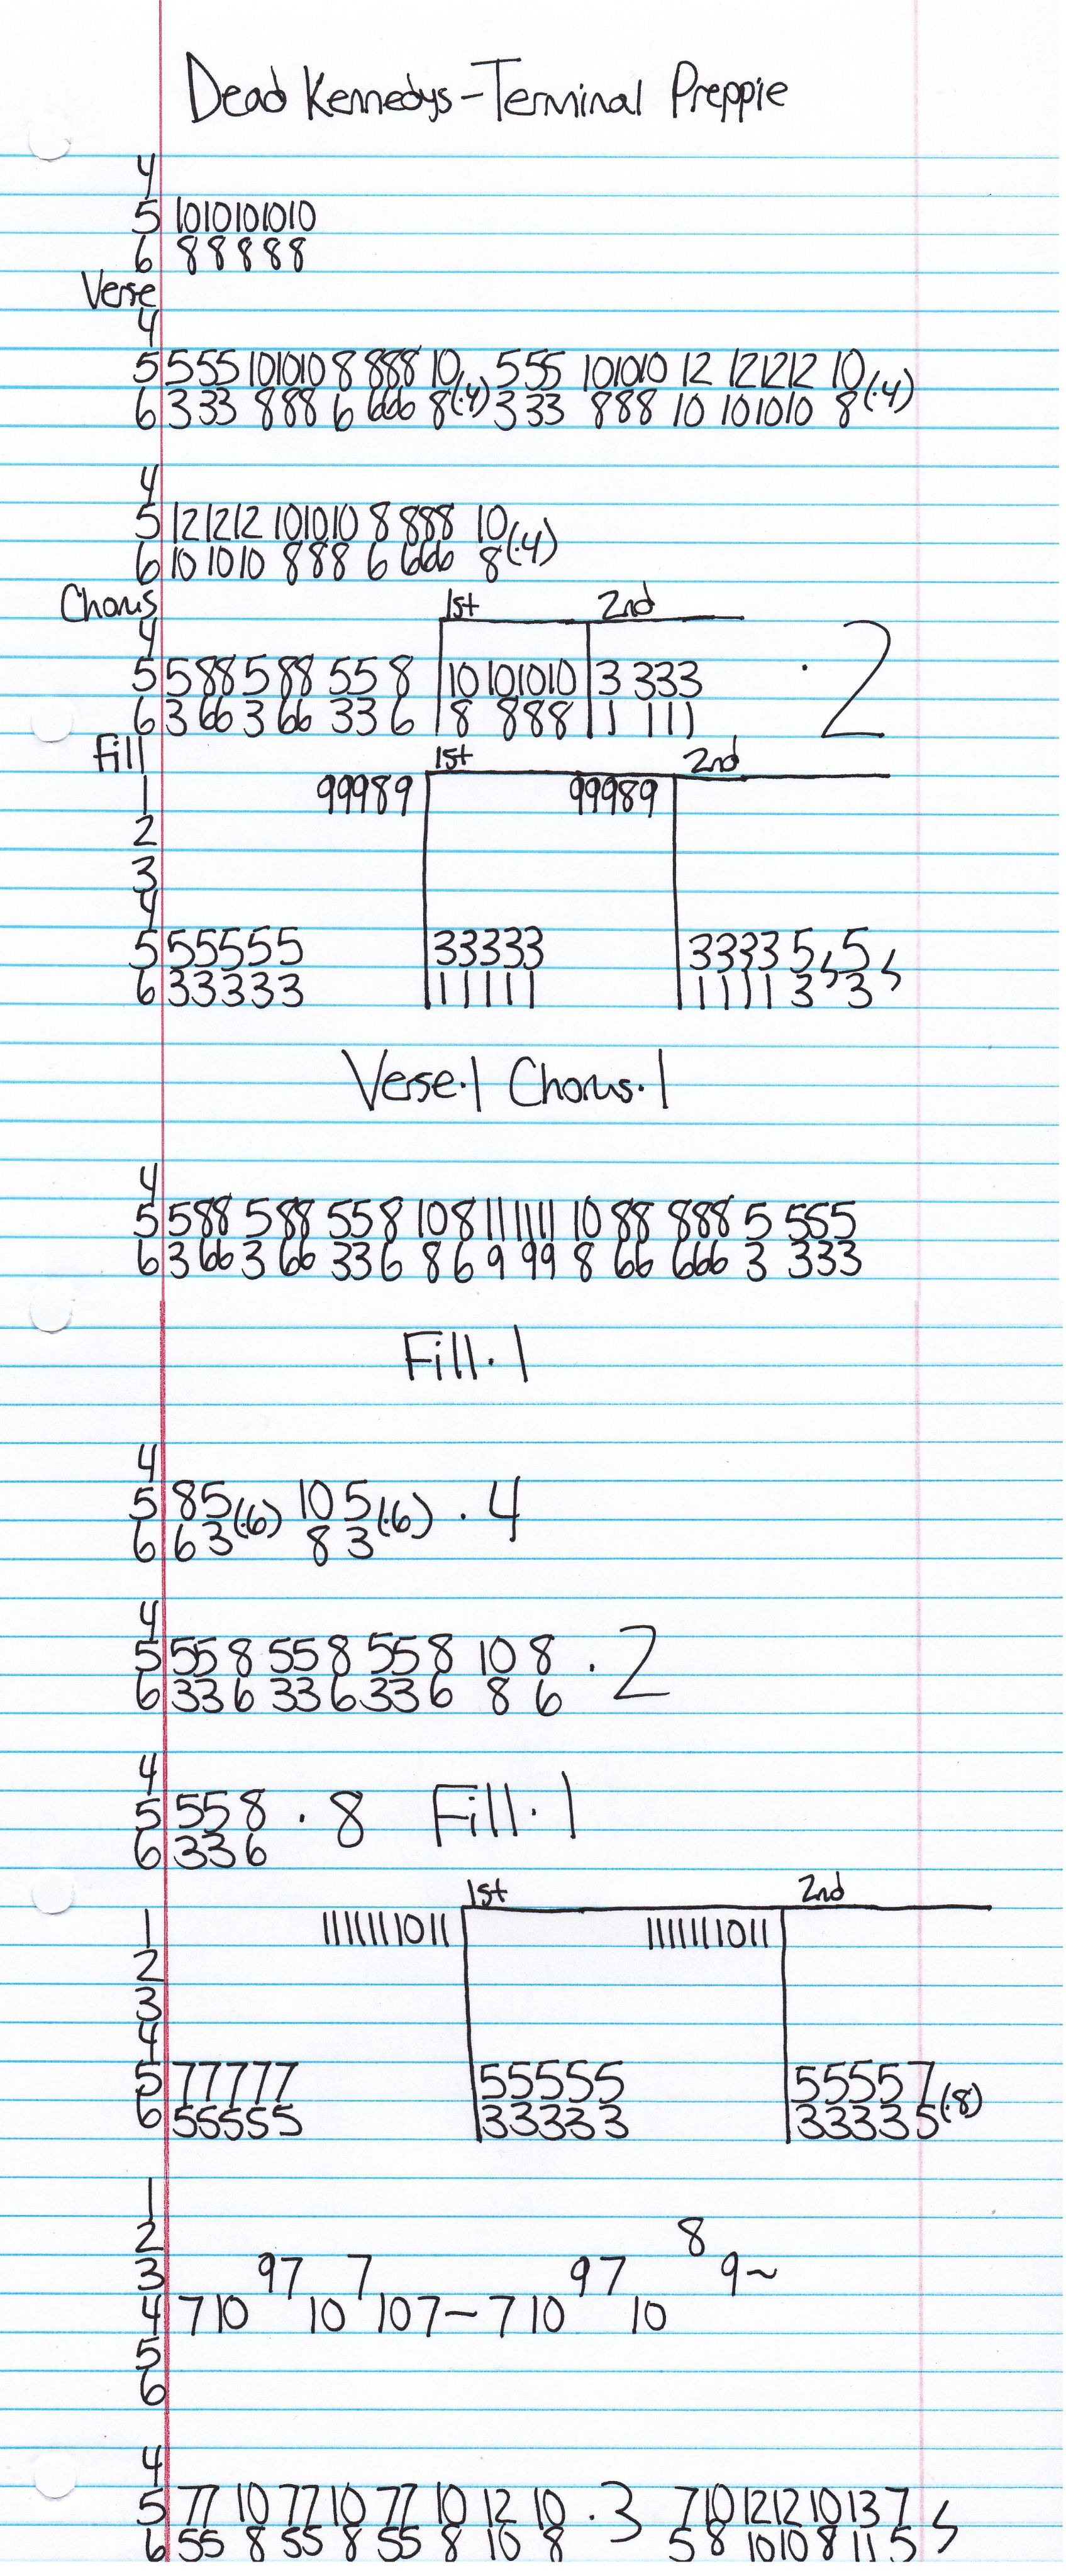 Dead Kennedys-Terminal Preppie
4
5 1010101010
6 8 8 8 8 8
Verse
4
5 555 101010 8 888 10 555 101010 12 121212 10
6 333 888 6 666 8(·4) 333 888 10 101010 8(·4)
4
5 121212 101010 8 888 10
6 101010 888 6 666 8(·4)
Chorus 1st 2nd
4
5 588 588 55 8 10 101010 3 333 · 2
6 3 66 3 66 33 6 8 888 1 111
Fill 1st 2nd
1 99989 99989
2
3
4
5 55555 33333 3333 5 5
6 33333 11111 1111 3 3
Verse·1 Chorus·1
4
5 588 588 55 8 10 8 11 1111 10 88 888 5 555
6 3 66 3 66 33 6 8 6 9 99 8 66 666 3 333
Fill·1
4
5 85 10 5 · 4
6 6 3(·6) 8 3(·6)
4
5 55 8 55 8 55 8 10 8 · 2
6 33 6 33 6 33 6 8 6
4
5 55 8 · 8 Fill·1
6 33 6
1st 2nd
1 11 11 11 10 11 11 11 11 10 11
2
3
4
5 77777 55555 55557
6 55555 33333 33335(·8)
1
2 8
3 97 7 97 9~
4 7 10 10 10 7- 7 10 10
5
6
4
5 77 10 77 10 77 10 12 10 · 3 7 10 12 12 10 13 7
6 55 8 55 8 55 8 10 8 5 8 10 10 8 11 5